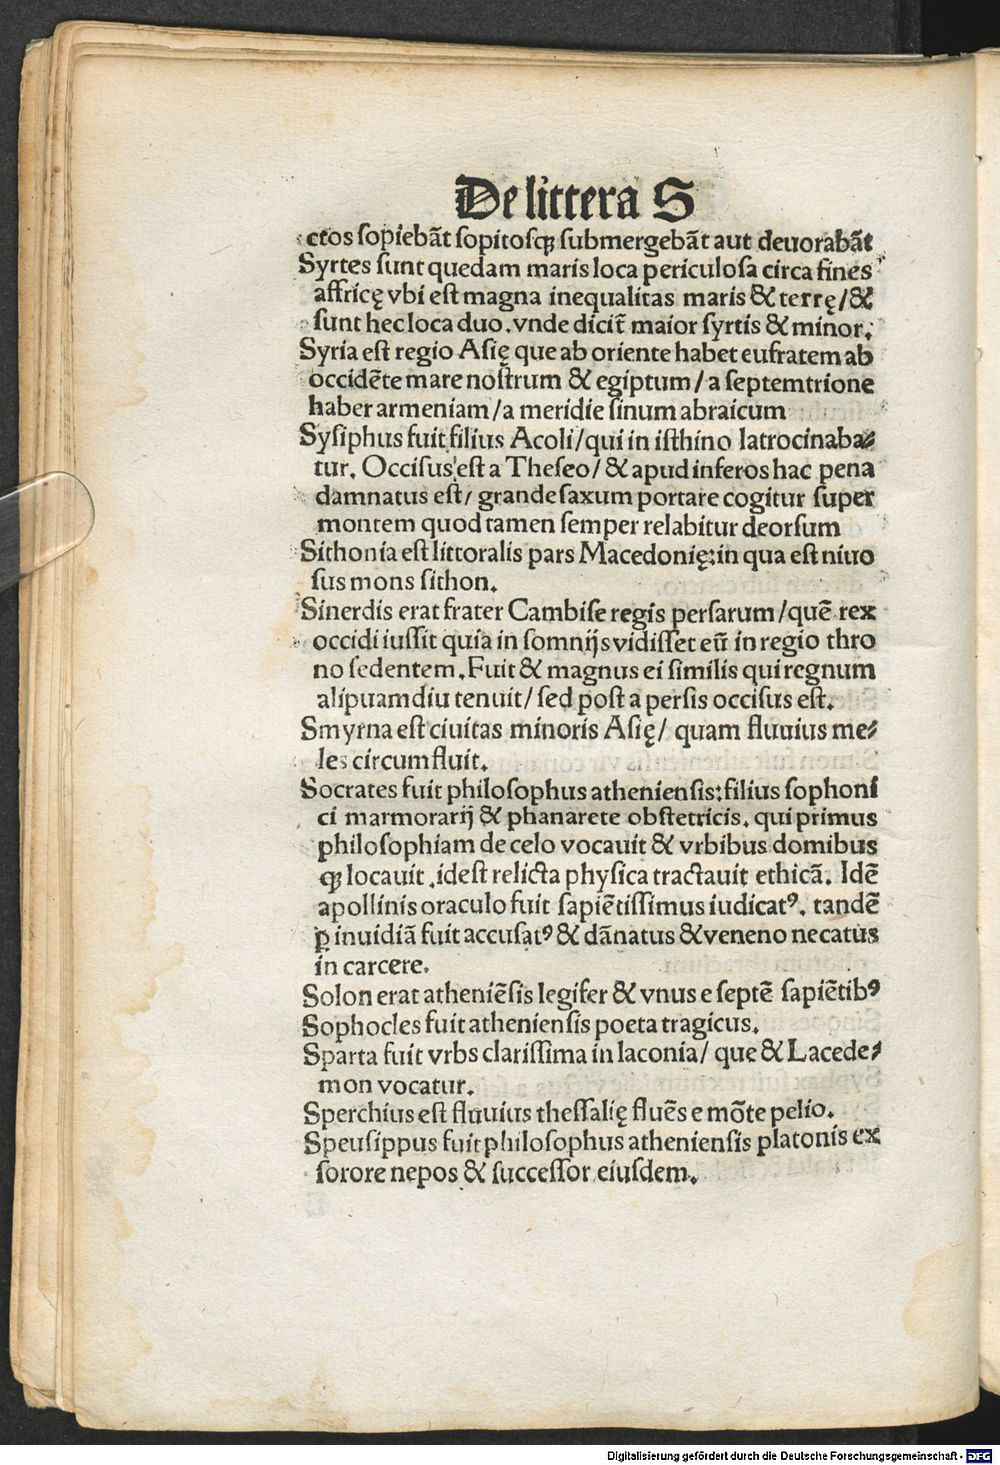 De littera S
ctos sopiebāt sopitosqꝫ submergebāt aut deuorabāt
Syrtes sunt quedam maris loca periculosa circa fines
affricę vbi est magna inequalitas maris & terrę/&
sunt hec loca duo.vnde dicit̄ maior syrtis & minor.
Syria est regio Asię que ab oriente habet eufratem ab
occidēte mare nostrum & egiptum/a septemtrione
haber armeniam/a meridie sinum abraicum
Sysiphus fuit filius Acoli/qui in isthino latrocinaba⸗
tur. Occisus est a Theseo/& apud inferos hac pena
damnatus est/ grande saxum portare cogitur super
montem quod tamen semper relabitur deorsum
Sithonia est littoralis pars Macedonię:in qua est niuo
sus mons sithon.
Sinerdis erat frater Cambise regis persarum/quē rex
occidi iussit quia in somnijs vidisset eū in regio thro
no sedentem.Fuit & magnus ei similis qui regnum
alipuamdiu tenuit/sed post a persis occisus est.
Smyrna est ciuitas minoris Asię/ quam fluuius me⸗
les circumfluit.
Socrates fuit philosophus atheniensis:filius sophoni
ci marmorarij & phanarete obstetricis. qui primus
philosophiam de celo vocauit & vrbibus domibus
qꝫ locauit .idest relicta physica tractauit ethicā. Idē
apollinis oraculo fuit sapiētissimus iudicatꝰ. tandē
ꝑ inuidiā fuit accusatꝰ & dānatus & veneno necatus
in carcere.
Solon erat atheniēsis legifer & vnus e septē sapiētibꝰ
Sophocles fuit atheniensis poeta tragicus.
Sparta fuit vrbs clarissima in laconia/ que & Lacede⸗
mon vocatur.
Sperchius est fluuius thessalię fluēs e mōte pelio.
Speusippus fuit philosophus atheniensis platonis ex
sorore nepos & successor eiusdem.
Digitalisierung gefördert durch die Deutsche Forschungsgemeinschaft - DFG